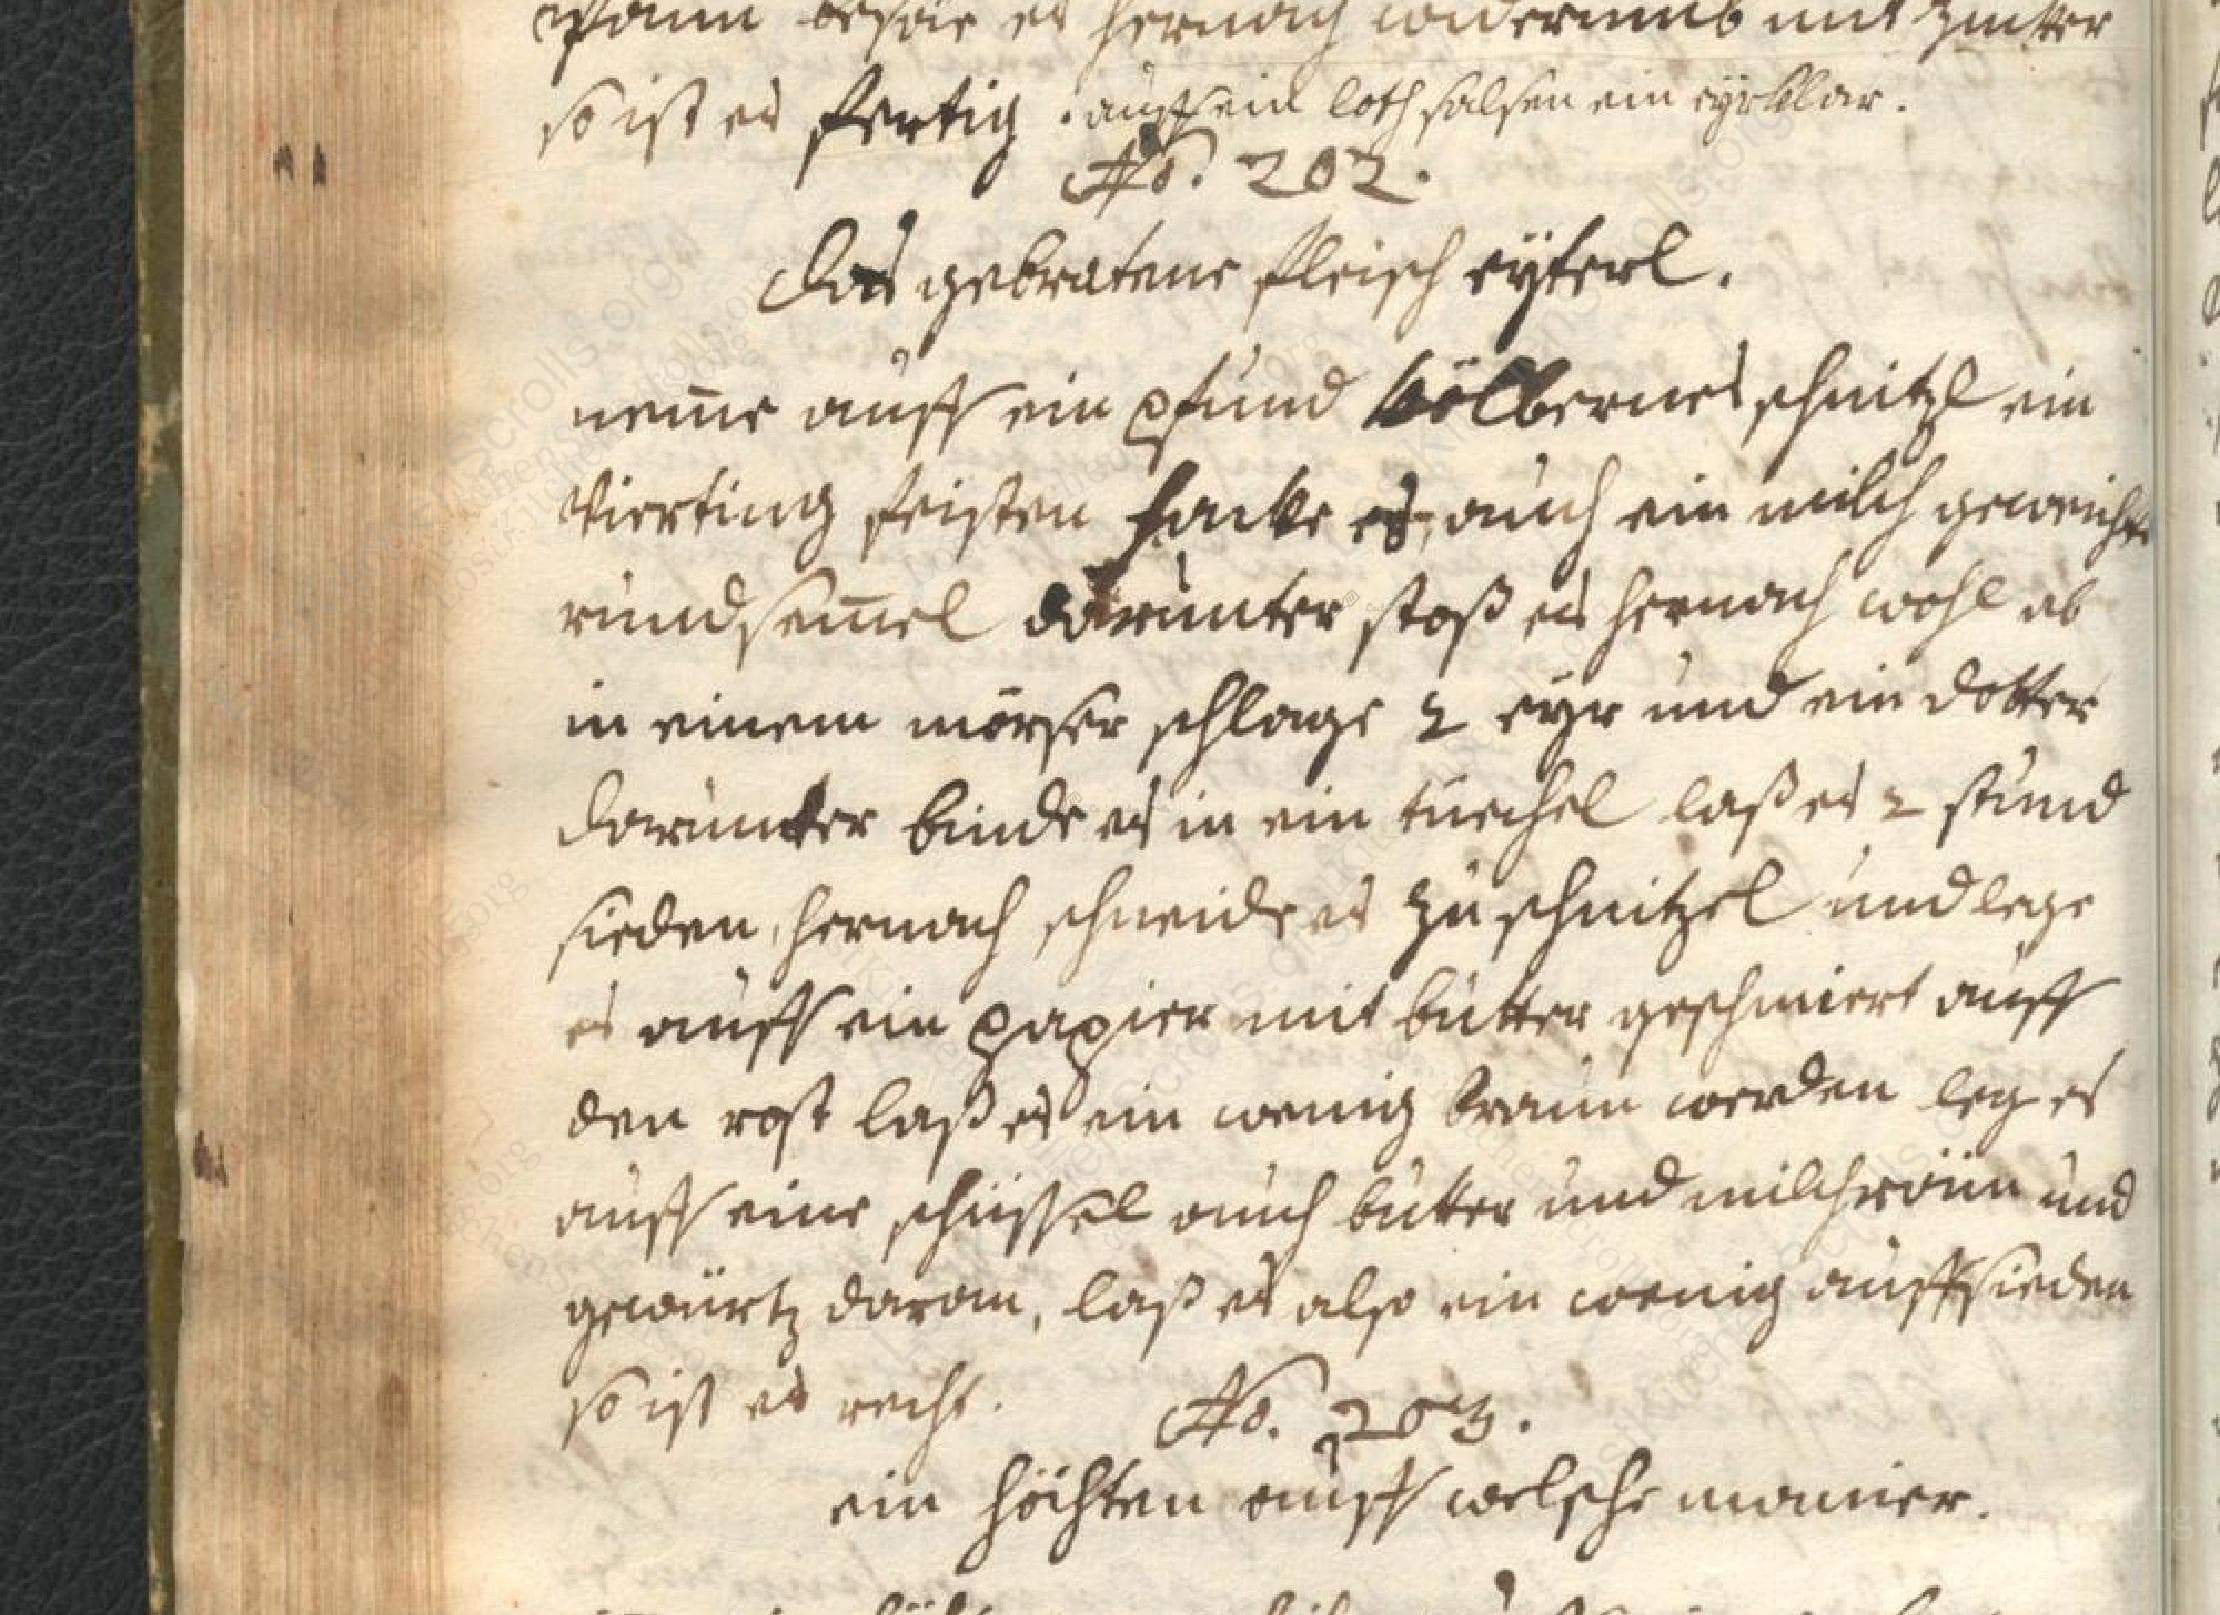 besäe es hernach widerumb mit zucker
so ist es fertig. auff ein loth salsen ein eyrklar.
No. 202.
das gebratene fleisch eyterl.
nem̄e auff ein pfund kölbernes schnitzl ein
vierting feisten hacke es, auch ein milch geweichte
rundsem̄el darunter stoß es hernach wohl ab
in einem mörser schlage 2 eyr und ein dotter
darunter binde es in ein tüechel laß es 2 stund
sieden, hernach schneide es zu schnitzel und lege
es auff ein papier mit butter geschmiert auff
den rost laß es ein wenig braun werden leg es
auff eine schüssel auch butter und milchräum und
gewürtz daran, laß es also ein wenig auffsieden
so ist es recht.
No. 203.
ein höchten auff welsche manier.